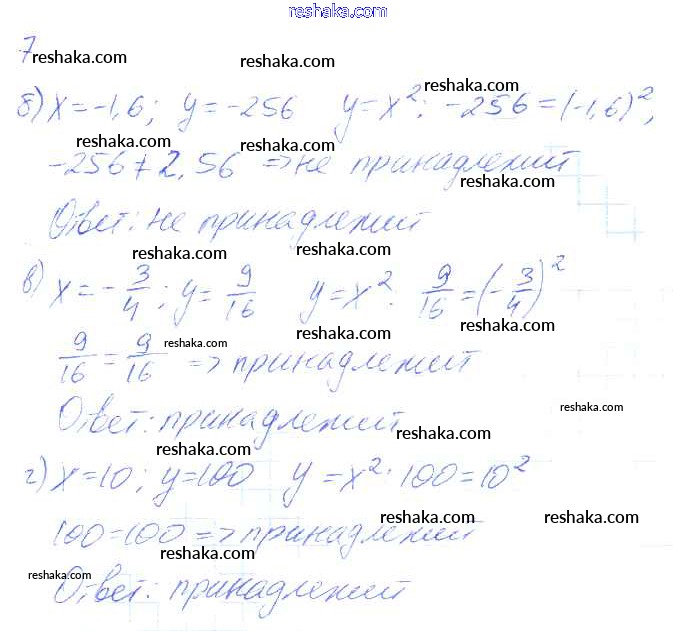 www.reshaka.com
7 reshaka.com reshaka.com
б) x = -1,6; y = -256 y = x²: -256 = (-1,6)²; reshaka.com
reshaka.com reshaka.com
-256 ≠ 2,56 => не принадлежит
reshaka.com
Ответ: не принадлежит
reshaka.com reshaka.com
в) x = -3/4; y = 9/16 y = x²: 9/16 = (-3/4)²
reshaka.com reshaka.com reshaka.com
9/16 = 9/16 => принадлежит
reshaka.com
reshaka.com
Ответ: принадлежит
reshaka.com reshaka.com
г) x = 10; y = 100 y = x²: 100 = 10²
reshaka.com reshaka.com
100 = 100 => принадлежит
reshaka.com
reshaka.com
Ответ: принадлежит